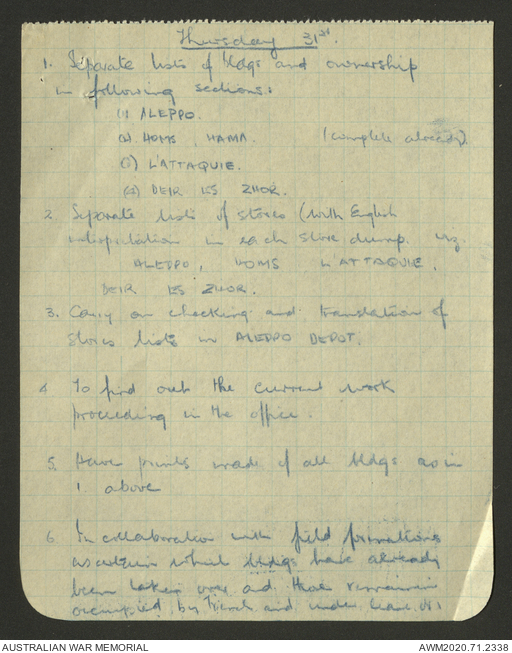 Thursday 31st.
1. Separate lists of bldgs and ownership
in following sections:
(1) ALEPPO.
(2) HOMS, HAMA. (complete already)
(3) L'ATTAQUIE.
(4) DEIR ES ZHOR.
2. Separate lists of stores (with English
interpretation in each store dump. viz.
ALEPPO, HOMS L'ATTAQUIE,
DEIR ES ZHOR.
3. Carry on checking and translation of
stores lists in ALEPPO DEPOT.
4 To find out the current work
proceeding in the office.
5. Have prints made of all bldgs as in
1 above
6 In collaboration with field formations
ascertain which bldgs have already
been taken over and those remaining
occupied by French and under lease
AUSTRALIAN WAR MEMORIAL
AWM2020.71.2338